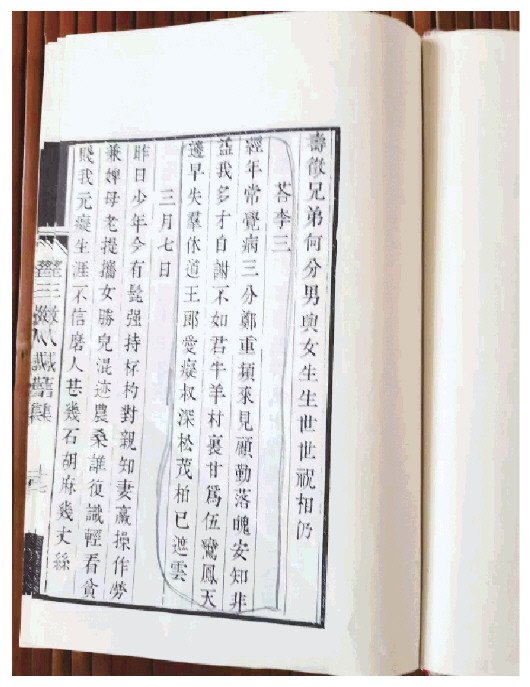 壽徵兄弟何分男與女生生世世祝相仍
荅李三
經年常覺病三分鄭重頻來見顧勤落魄安知非
益我多才自謝不如君牛羊村裏甘爲伍鸞鳳天
邊早失羣休道王郎愛癡叔深松茂柏已遮雲
三月七日
昨日少年今有髭强持桮杓對親知妻羸操作勞
兼婢母老提攜女勝兒混迹農桑誰復識輕看貧
賤我元癡生涯不信磨人甚幾石胡麻幾丈絲